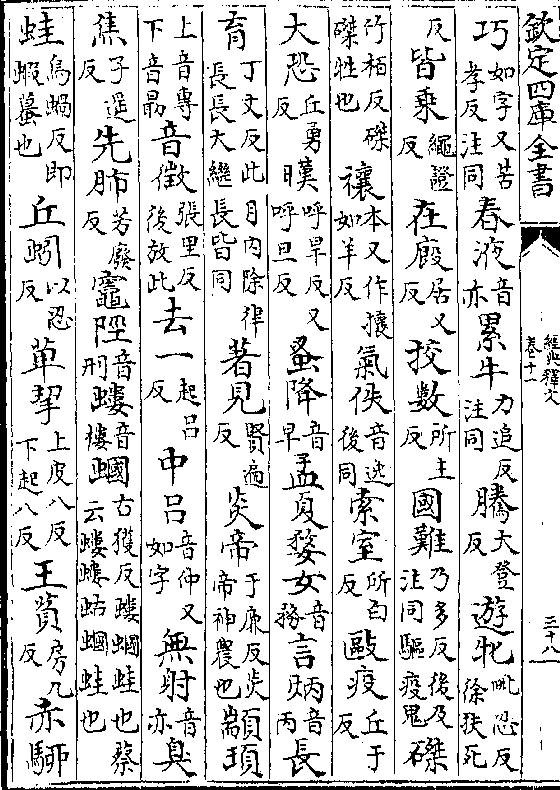 欽定四庫全書
經典釋文
卷十一
三十八
巧如字又苦孝反注同春液音亦累牛力追反注同騰大登反遊牝毗忍反徐扶死
反皆乗繩證反在廄居又反挍數所主反國難乃多反後及注同驅疫鬼磔
竹栢反磔磔牲也禳本又作攘如羊反氣佚音逸後同索室所白反敺疫丘于反
大恐丘勇反暵呼旱反又呼旦反蚤降音早孟夏婺女音務言炳音丙長
育丁丈反此月内除律長長大繼長皆同著見賢遍反炎帝于廉反炎帝神農也顓頊
上音專下音勗音徵張里反後放此去一起吕反中吕音仲又如字無射音亦臭
焦子遥反先肺芳廢反竈陘音刑螻音樓蟈古獲反螻蟈蛙也蔡云螻螻蛄蟈蛙也
蛙烏蝸反即蝦蟇也丘蚓以忍反萆挈上皮八反下起八反王萯房九反赤駵